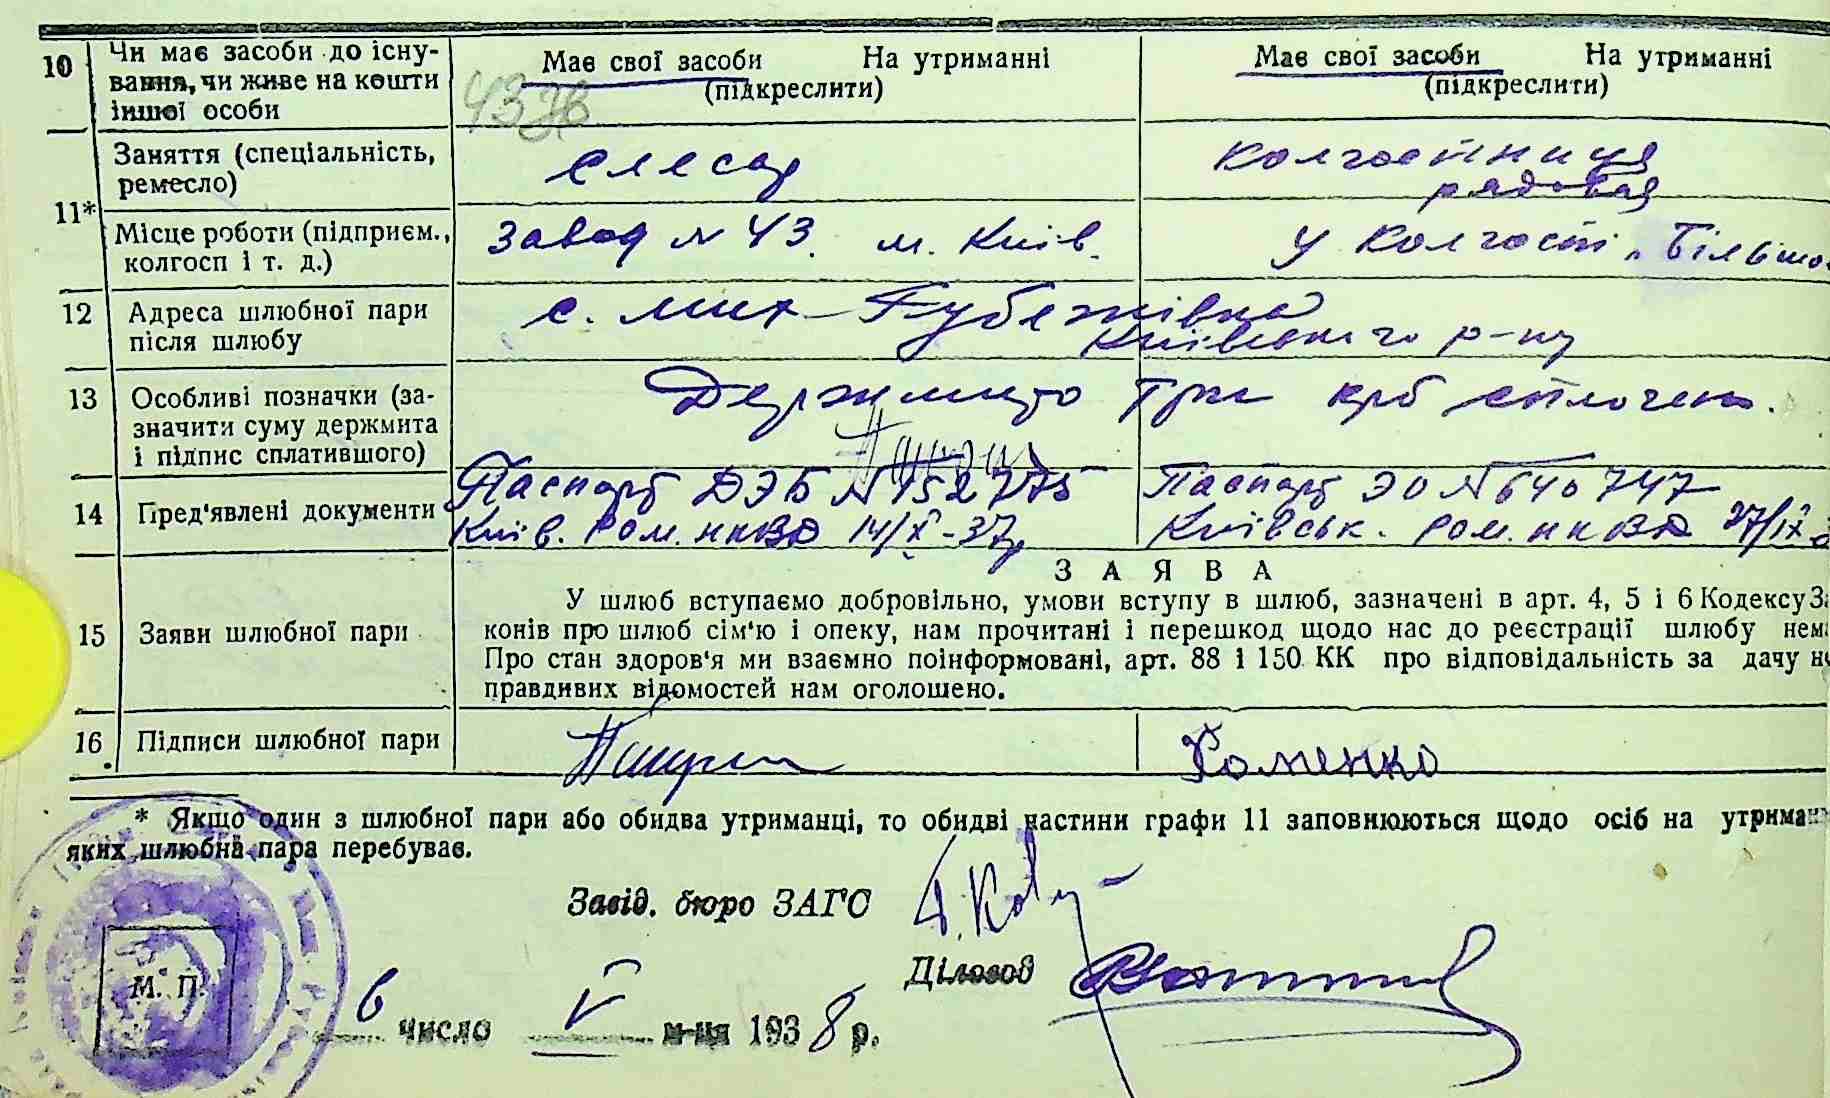 10 Чи має засоби до існу- Має свої засоби На утриманні Має свої засоби На утриманні
вання, чи живе на кошти (підкреслити) (підкреслити)
іншої особи
Заняття (спеціальність, слесар колгостниця
ремесло) рядовая
11*
Місце роботи (підприєм., завод № 43. м. Київ. у колгості „Більшо
колгосп і т. д.)
12 Адреса шлюбної пари с. Мих-Рубежівка
після шлюбу Київського р-ну
13 Особливі позначки (за- Держмито три крб сплочено.
значити суму держмита
і підпис сплатившого)
Паспорт ДЭБ № 152775 Паспорт ЭО № 640747
14 Пред'явлені документи Київ. Ром. НКВД 14/X-37р Київськ. Ром. НКВД 27/IX-3
З А Я В А
У шлюб вступаємо добровільно, умови вступу в шлюб, зазначені в арт. 4, 5 і 6 Кодексу За
15 Заяви шлюбної пари конів про шлюб сім'ю і опеку, нам прочитані і перешкод щодо нас до реєстрації шлюбу нема
Про стан здоров'я ми взаємно поінформовані, арт. 88 і 150 КК про відповідальність за дачу не
правдивих відомостей нам оголошено.
16 Підписи шлюбної пари Хоменко
* Якщо один з шлюбної пари або обидва утриманці, то обидві частини графи 11 заповнюються щодо осіб на утриман
яких шлюбна пара перебуває.
Завід. бюро ЗАГС
Діловод
М. П.
6 число V м-ця 1938 р.